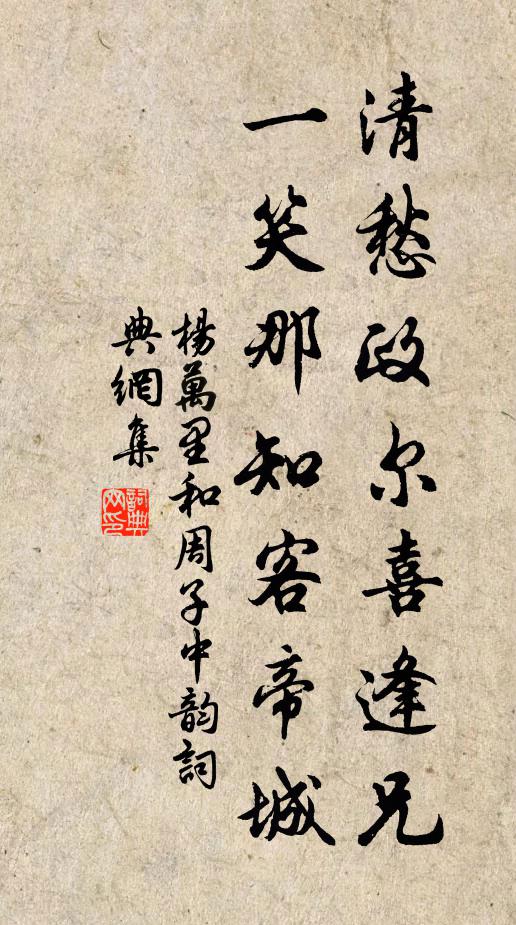 清愁政尔喜逢兄
一笑那知客帝城
楊萬里和周子中韵詞
典網集
詞典网印